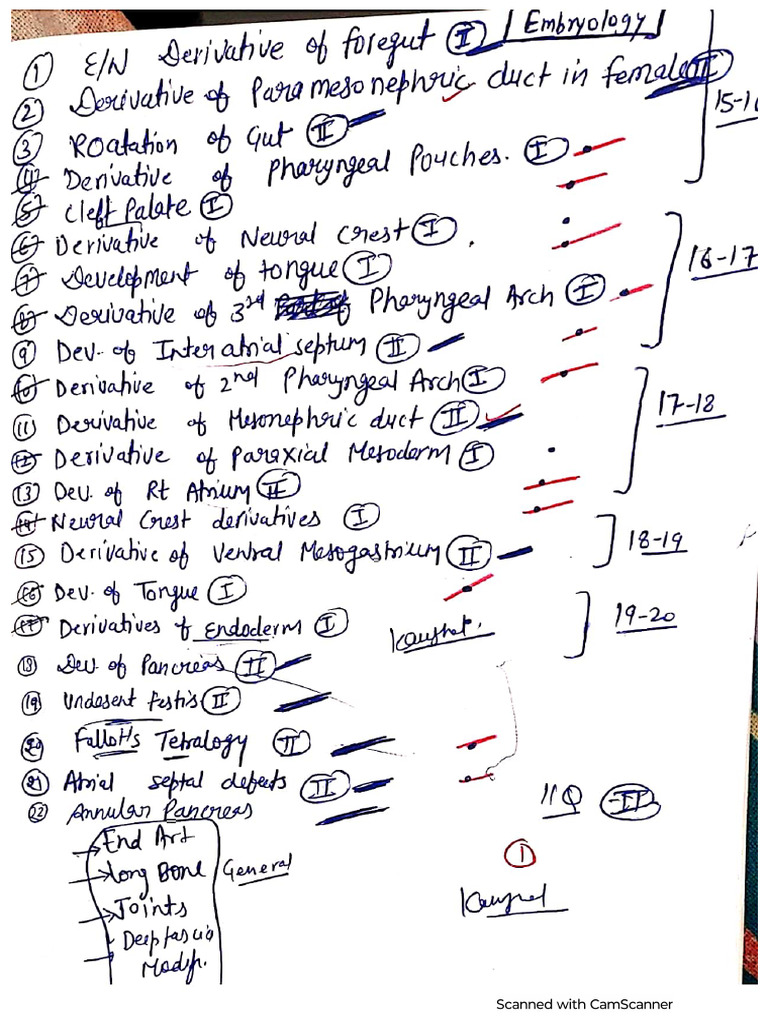 ① E/N Derivative of foregut Ⓘ [Embryology]
② Derivative of Paramesonephric duct in female Ⓘ
③ ROatation of Gut Ⓘ Ⓘ
④ Derivative of Pharyngeal Pouches. Ⓘ
15-16
⑤ Cleft Palate Ⓘ
⑥ Derivative of Neural Crest Ⓘ.
⑦ Development of tongue Ⓘ
16-17
⑧ Derivative of 3rd Pharyngeal Arch Ⓘ
⑨ Dev. of Interatrial septum (II)
⑩ Derivative of 2nd Pharyngeal Arch Ⓘ
⑪ Derivative of Mesonephric duct (II)
17-18
⑫ Derivative of Paraxial Mesoderm Ⓘ
⑬ Dev. of Rt Atrium (II)
⑭ Neural Crest derivatives Ⓘ
⑮ Derivative of Ventral Mesogastrium (II)
18-19
⑯ Dev. of Tongue Ⓘ
⑰ Derivatives of Endoderm Ⓘ
19-20
⑱ Dev of Pancreas (II)
⑲ Undesent testis (II)
⑳ Fallot's Tetralogy (II)
㉑ Atrial septal defects (II)
㉒ Annular Pancreas
11Q (II)
End Art
Long Bone General
Joints
Deep fascia
Modif.
①
Scanned with CamScanner